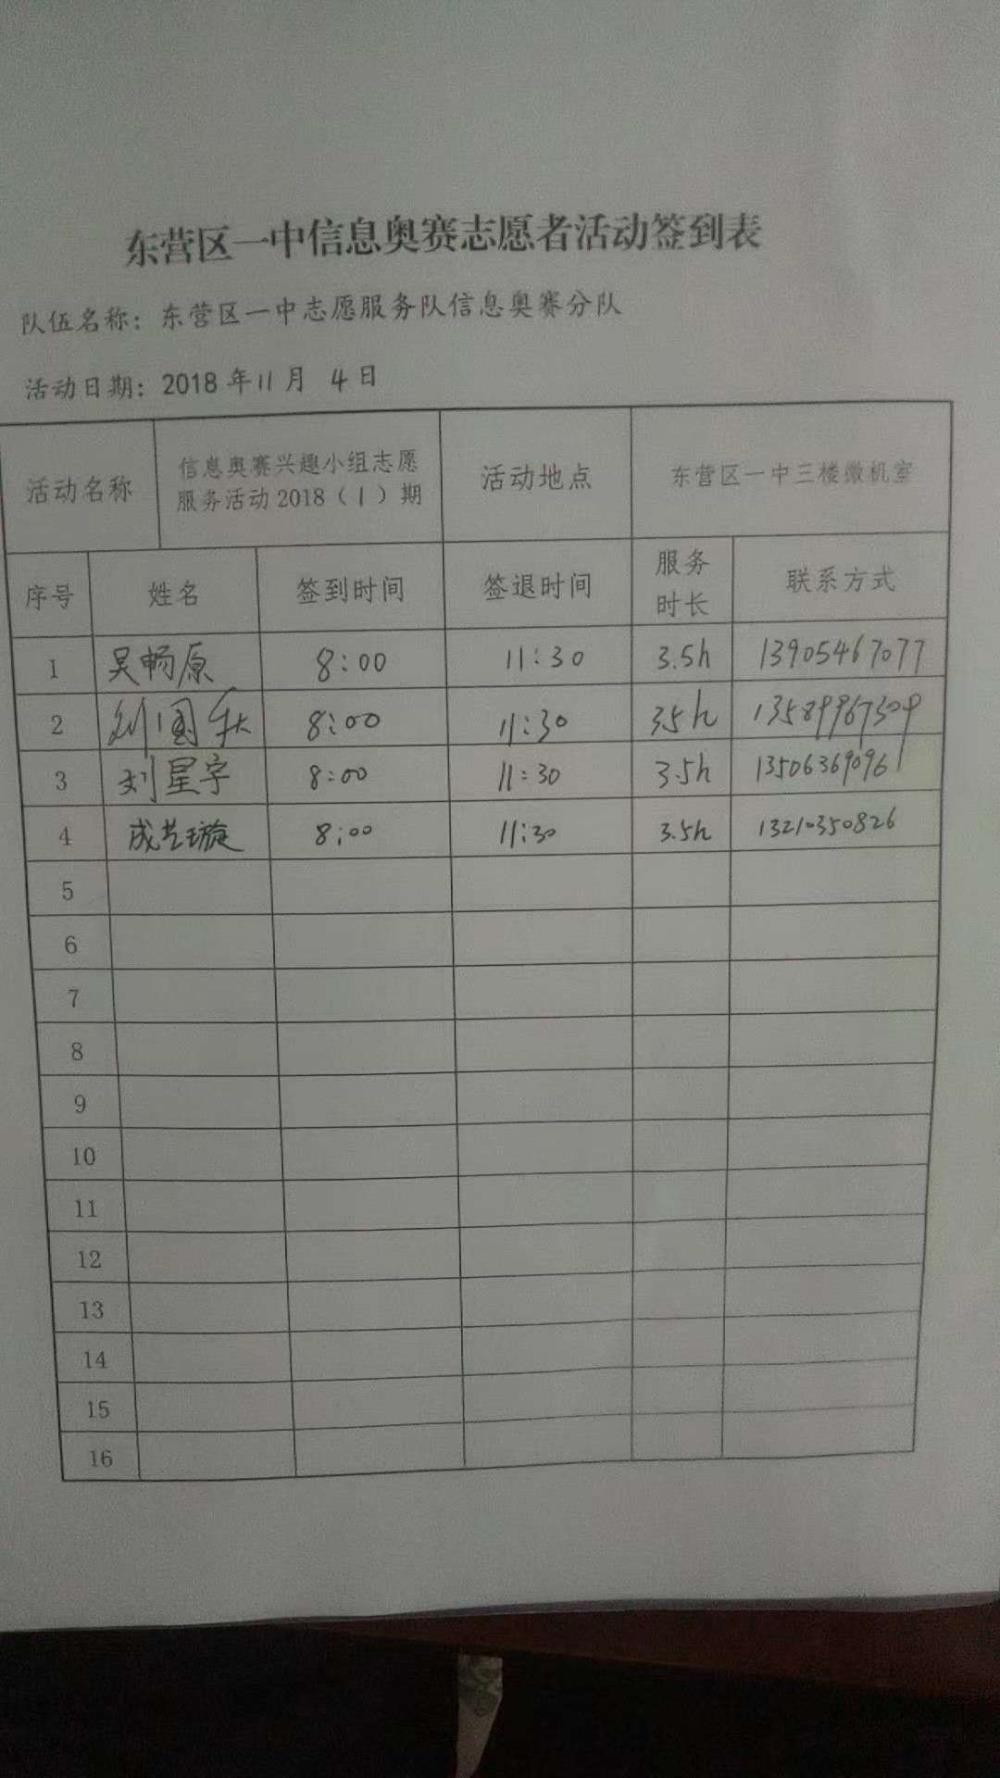 东营区一中信息奥赛志愿者活动签到表
队伍名称：东营区一中志愿服务队信息奥赛分队
活动日期：2018年11月 4日
活动名称 信息奥赛兴趣小组志愿服务活动2018（1）期 活动地点 东营区一中三楼微机室
序号 姓名 签到时间 签退时间 服务时长 联系方式
1 吴畅原 8:00 11:30 3.5h 13905467077
2 刘国秋 8:00 11:30 3.5h 13589967309
3 刘星宇 8:00 11:30 3.5h 13506369961
4 成艺璇 8:00 11:30 3.5h 13210350826
5
6
7
8
9
10
11
12
13
14
15
16